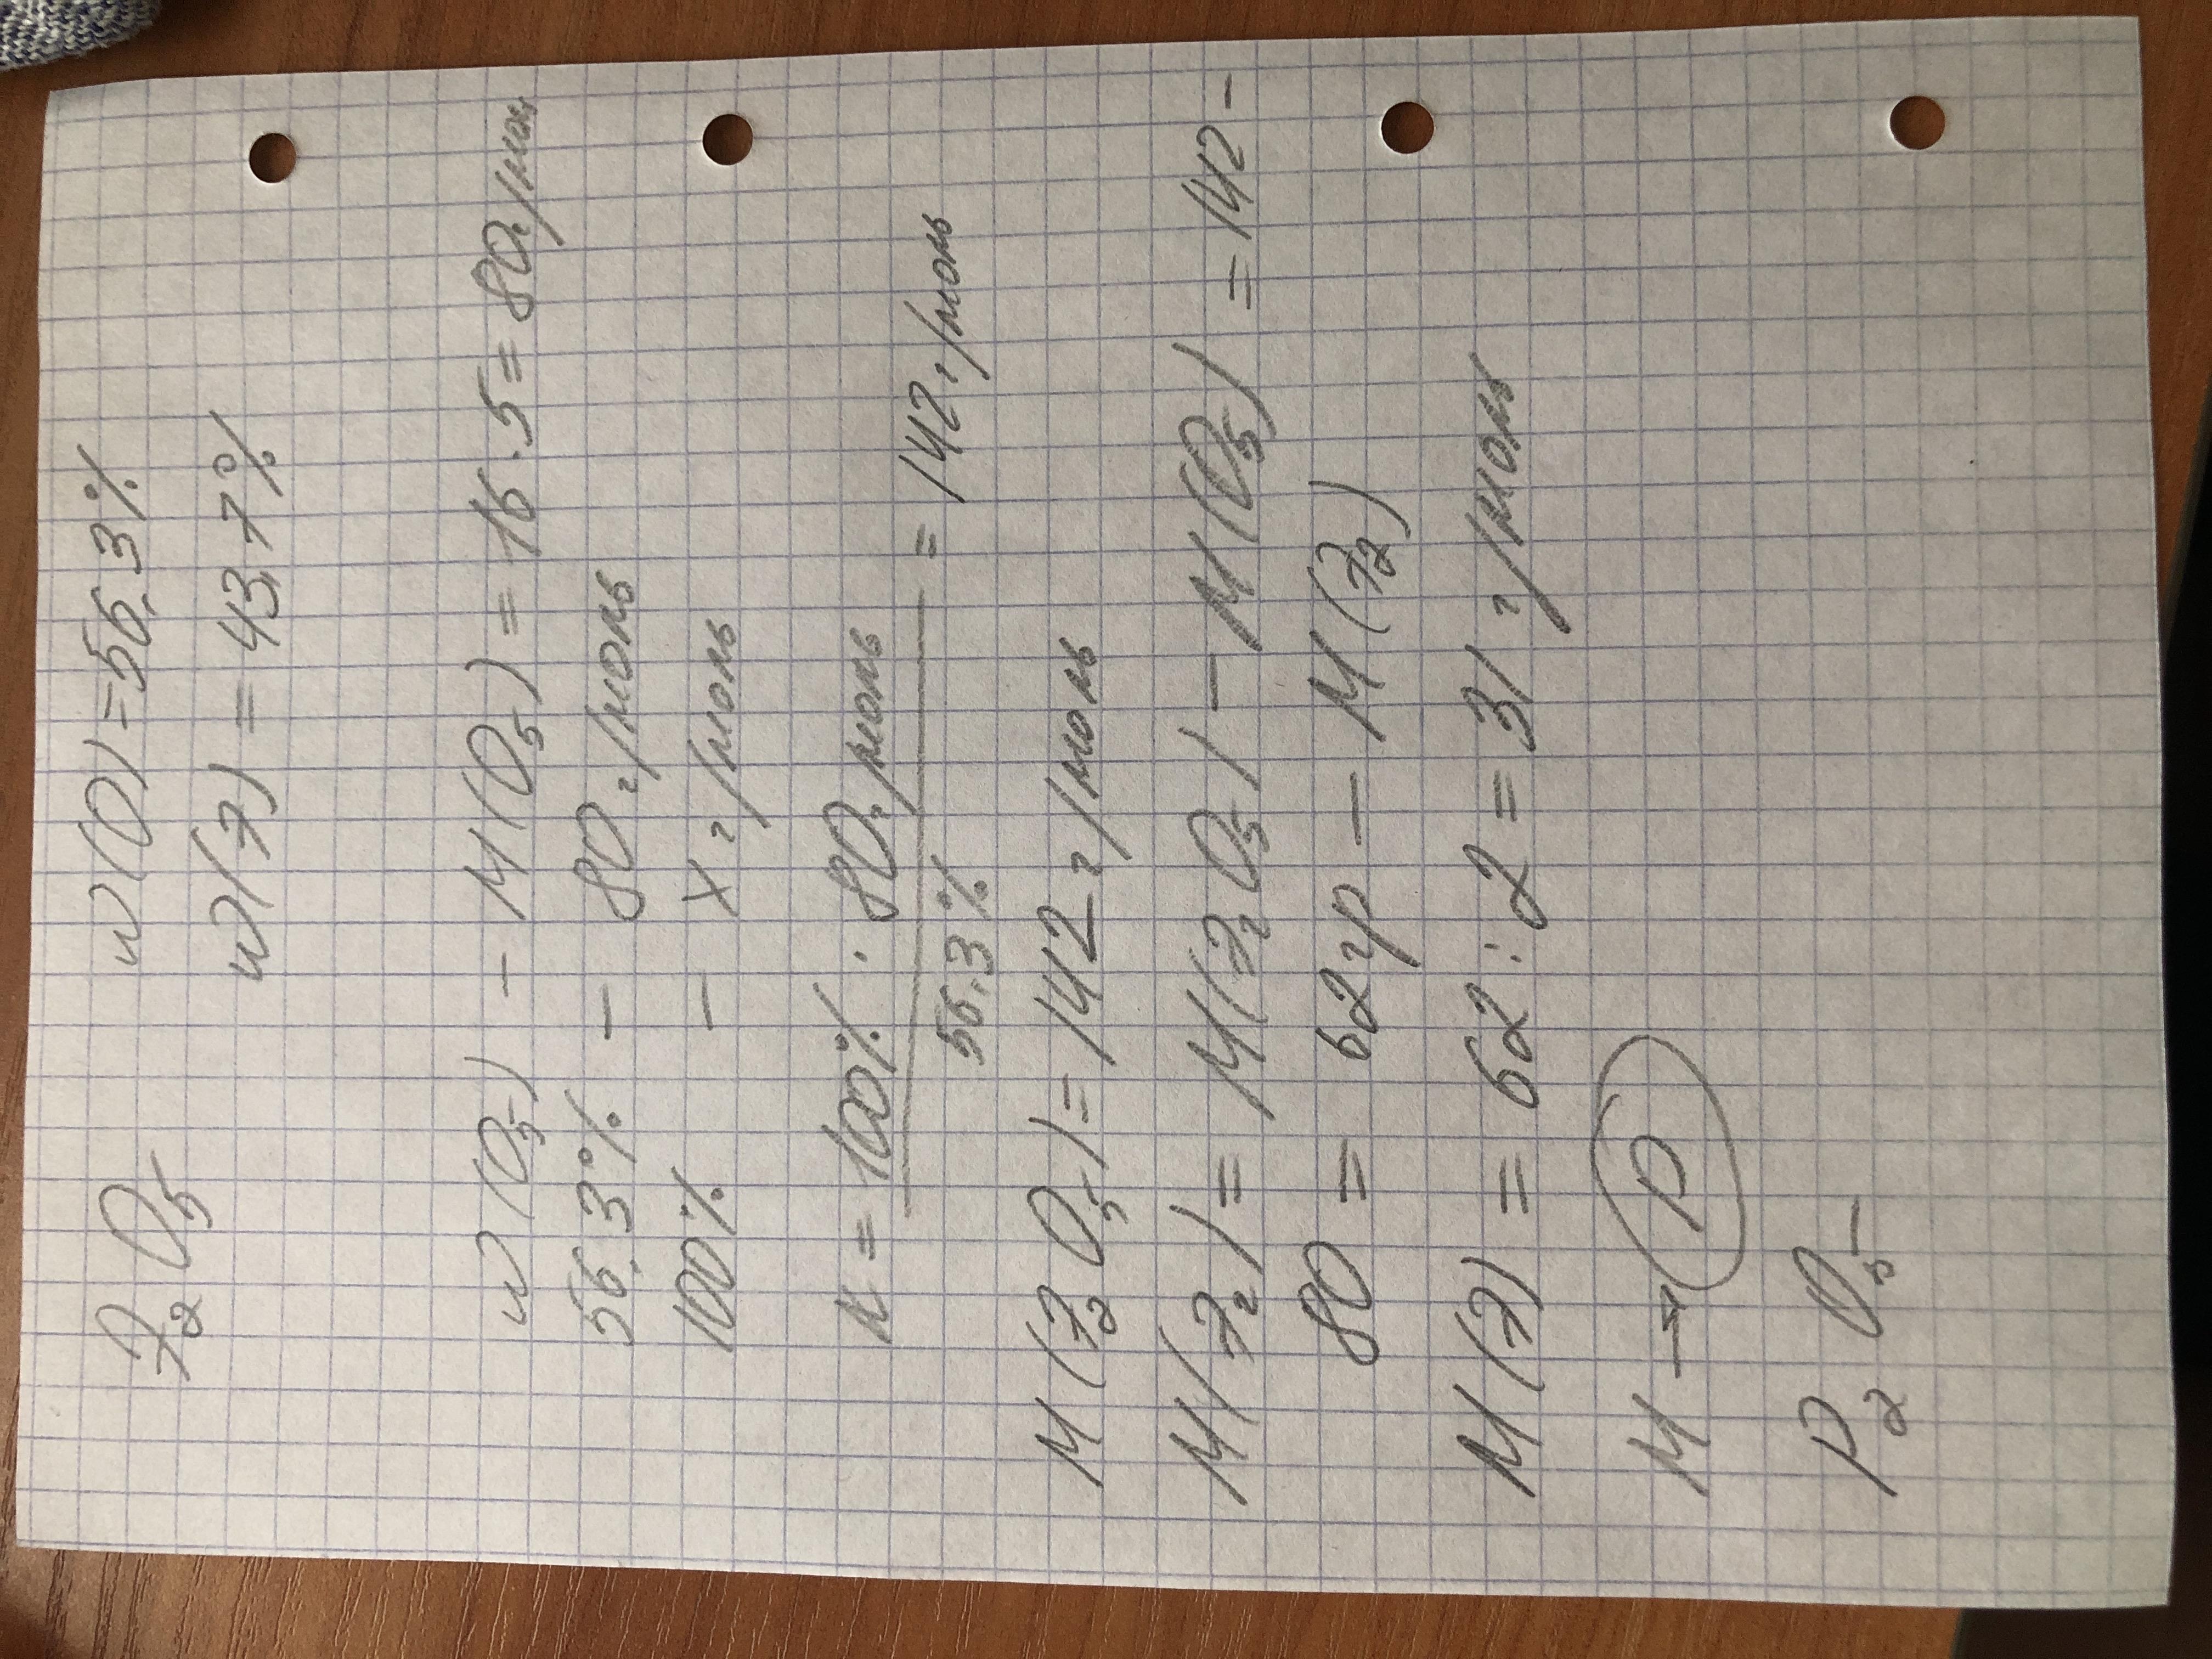 Э₂O₅ w(O) = 56,3%
w(Э) = 43,7%
w(O₅) - M(O₅) = 16 · 5 = 80 г/моль
56,3% - 80 г/моль
100% - X г/моль
x = 100% · 80 г/моль / 56,3% = 142 г/моль
M(Э₂O₅) = 142 г/моль
M(Э₂) = M(Э₂O₅) - M(O₅) = 142 -
80 = 62 гр - M(Э₂)
M(Э) = 62 : 2 = 31 г/моль
M → P
P₂O₅ -